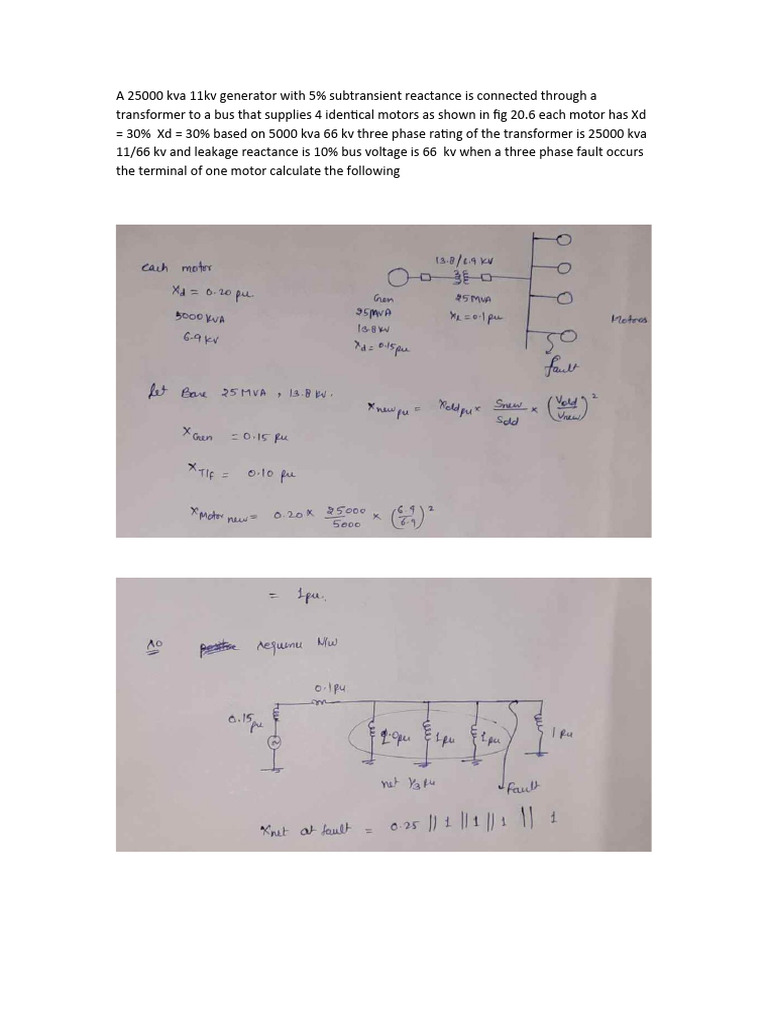 A 25000 kva 11kv generator with 5% subtransient reactance is connected through a
transformer to a bus that supplies 4 identical motors as shown in fig 20.6 each motor has Xd
= 30%  Xd = 30% based on 5000 kva 66 kv three phase rating of the transformer is 25000 kva
11/66 kv and leakage reactance is 10% bus voltage is 66  kv when a three phase fault occurs
the terminal of one motor calculate the following
each motor
Xd = 0.20 pu
5000 KVA
6.9 KV
13.8/6.9 KV
Gen
25MVA
13.8 KV
Xd = 0.15 pu
25 MVA
XL = 0.1 pu
Motros
fault
Let Base 25 MVA, 13.8 KV.
X new pu = Xold pu x Snew/Sold x (Vold/Vnew)²
X Gen = 0.15 Pu
X T/f = 0.10 pu
X Motor new = 0.20 x 25000/5000 x (6.9/6.9)²
= 1pu.
sequenu N/w
0.1 pu
0.15 pu
1.0pu
1pu
1pu
1 pu
net 1/3 pu
Fault
Xnet at fault = 0.25 || 1 || 1 || 1 || 1